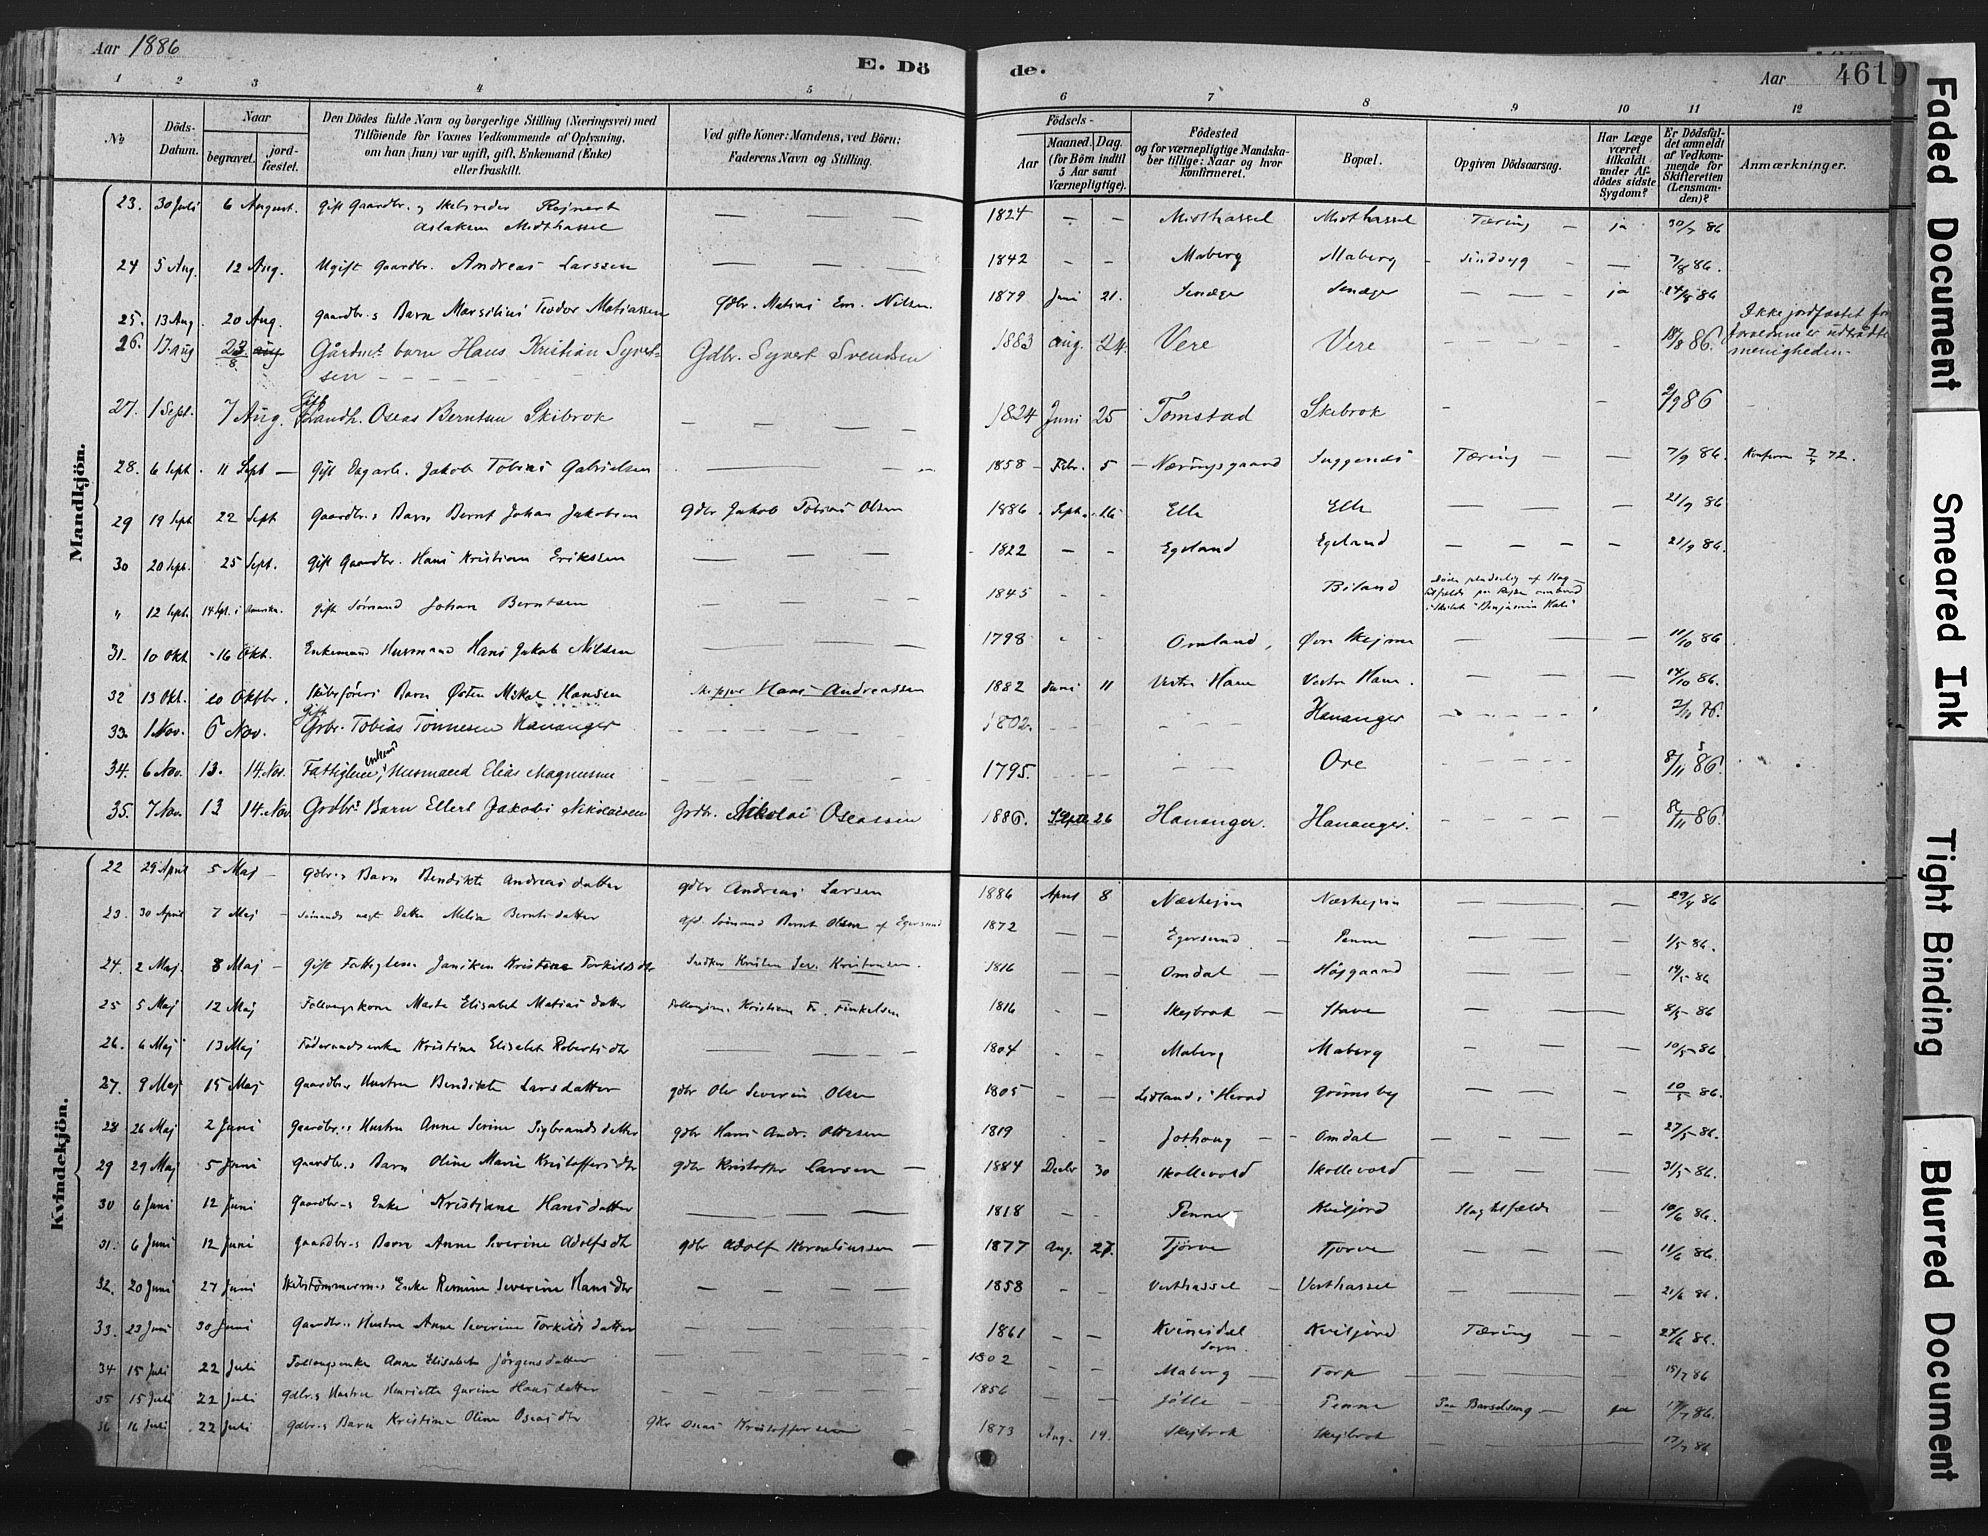 Aar 1886
E. Dö de.
Aar
4619
1 2 3 4 5 6 7 8 9 10 11 12
No
Döds-Datum.
Naar
begravet.
jord-fæstet.
Den Dödes fulde Navn og borgerlige Stilling (Næringsvei) med
Tilföiende for Voxnes Vedkommende af Oplysning,
om han (hun) var ugift, gift, Enkemand (Enke)
eller fraskilt.
Ved gifte Koner: Mandens, ved Börn:
Faderens Navn og Stilling.
Födsels-
Aar
Maaned. Dag.
(for Börn indtil
5 Aar samt
Værnepligtige).
Födested
og for værnepligtige Mandska-
ber tillige: Naar og hvor
konfirmeret.
Bopæl.
Opgiven Dödsaarsag.
Har Læge
været
tilkaldt
under Af-
dödes sidste
Sygdom?
Er Dödsfal-
det anmeldt
af Vedkom-
mende for
Skifteretten
(Lensman-
den)?
Anmærkninger.
Mandkjön.
23. 30 Juli 6 August. Gift Gaardbr. og Skibsreder Rejnert 1824 — — Midthassel Midthassel Tæring — ja 30/7 86
Aslaksen Midthassel
24 5 Aug. 12 Aug. Ugift Gaardbr. Andreas Larssen — — — 1842 — — Maberg Maberg Sindsyg — — 7/8 86.
25. 13 Aug. 20 Aug. Gaardbr.s Barn Marsilius Teodor Matiassen Gdbr. Matias Em. Nilsen. 1879 Juni 21. — — — ja 24/8 86
26. 17 aug 23/8 aug Gårdm. barn Hans Kristian Syvert- Gdbr. Syvert Svendsen 1883 aug. 24. Vere Vere 18/8 86. Ikke jordfæstet for
sen forældrene er udtrådte
menigheden.
27. 1 Sept. 7 Aug. Gift Gaardb. Oseas Berntsen Skibrok — — — 1824 Juni 25 Tomstad Skibrok — — 2/9 86
28. 6 Sept. 11 Sept — Gift Dagarb. Jakob Tobias Gabrielsen — 1858 Febr. 5 Næringsgaard Tæring — — 7/9 86. Konfirm 72.
29 19 Sept 22 Sept Gaardbr.s Barn Bernt Johan Jakobsen Gdbr Jakob Tobias Olsen 1886 Sept. Elle Elle — — — 21/9 86
30 20 Sept. 25 Sept. Gift Gaardbr. Hans Kristian Erikssen — — — 1822 — — Egeland Egeland — — — — 21/9 86.
" 12 Sept. 14 Sept. i Amerika. Gift Sömand Johan Berntsen — — — 1845 — — Biland Döde pludselig af Slag-
31. 10 Okt 16 Okt. Enkemand Husmand Hans Jakob Nilssen — — 1798 Omland, Øvre Skejme — — — 11/10 86
32 13 Okt. 20 Oktbr. Skibsförers Barn Østen Mikal Hanssen Skipper Hans Andreassen 1882 Juni 11 Vestre Ham Vestre Ham. — — — 14/10 86.
33. 1 Nov. 6 Nov. Gift Grbr. Tobias Tönnesen Hananger 1802. — — — Hananger 2/11 86.
34. 6 Nov. 13. 14. Nov. Fattiglem, enkemd Husmand Elias Magnussen 1795. Ore 8/11 86.
35. 7 Nov. 13 14. Nov. Grdbrs Barn Ellert Jakobi Nikolaisen Grdbr. Nikolai Oseassen 1886. Septb 26 Hananger. Hananger. 8/11 86.
Kvindekjön.
22 29 April 5 Maj — Gdbr.s Barn Bendikte Andreasdatter Gdbr Andreas Larsen 1886 April 8 — — — 29/4 86
23. 30 April 7 Maj — Sömands Datter Melia Berntsdatter Sömand Bernt Olsen af Egersund 1872 — — Egersund — Penne — — 1/5 86.
24. 2 Maj. 8 Maj — Gift Fattiglem Janiken Kristine Torkildsdtr 1816 — — Omdal — Højgaard — — — 86
25 5 Maj 12 Maj Follaugskone Marte Elisabet Matiasdatter Kristian Fr. Finkelsen 1816 - — Skejbrok — Stave — — — 8/5 86
26. 6 Maj 13 Maj Föderaadsenke Kristine Elisabet Robertsdtr — — — 1804 - — Maberg Maberg — — — 10/5 86
27. 9 Maj 15 Maj Gaardbr.s Hustru Bendikte Larsdatter gdbr Ole Severin Olsen 1805 — — Lidland i Herad Grimsby — — — 10/5 86.
28 26 Maj 2 Juni Gaardbr.s Hustru Anne Serine Sigbrandsdatter gdbr Hans Andr. Ottesen 1819 — — Omdal — — — 27/5 86.
29 29 Maj 5 Juni Gaardbr.s Barn Oline Marie Kristoffersdtr gdbr Kristoffer Larsen — 1884 Decbr 30 Skollevold Skollevold — — — 31/5 86.
30 6 Juni 12 Juni Gaardbr.s Enke Kristiane Hansdatter — — — 1818 - — Penne Kviljord Slagtilfælde — — 10/6 86.
31. 6 Juni 12 Juni Gaardbr.s Barn Anne Severine Adolfsdtr gdbr Adolf Korneliussen — 1877 Aug. 27. Tjörve Tjörve — — — 11/6 86.
32. 20 Juni 27 Juni Skibstömmerm.s Enke Remine Severine Hansdtr — — — 1858 - — Vesthassel — Vesthassel — — — 21/6 86.
33. 23 Juni 30 Juni Gaardbr.s Hustru Anne Severine Torkildsdatter — — — 1861 — — Kvinesdal Kviljord Tæring — — 24/6 86.
Sogn.
34 15 Juli 22 Juli Follaugsenke Anne Elisabet Jörgensdatter — — — 1802 — — Maberg — Torp — — — 15/7 86
35 15 Juli 22 Juli Gdbr.s Hustru Henriette Gurine Hansdatter — — — 1856 — — Jölle — Penne Paa Barselseng — ja 17/7 86.
36 16 Juli 22 Juli Gdbr.s Barn Kristine Oline Oseasdtr Gbr Oseas Kristoffersen — 1873 Aug. 14. Skejbrok Skejbrok — — — 17/7 86
Faded Document
Smeared Ink
Tight Binding
Blurred Document